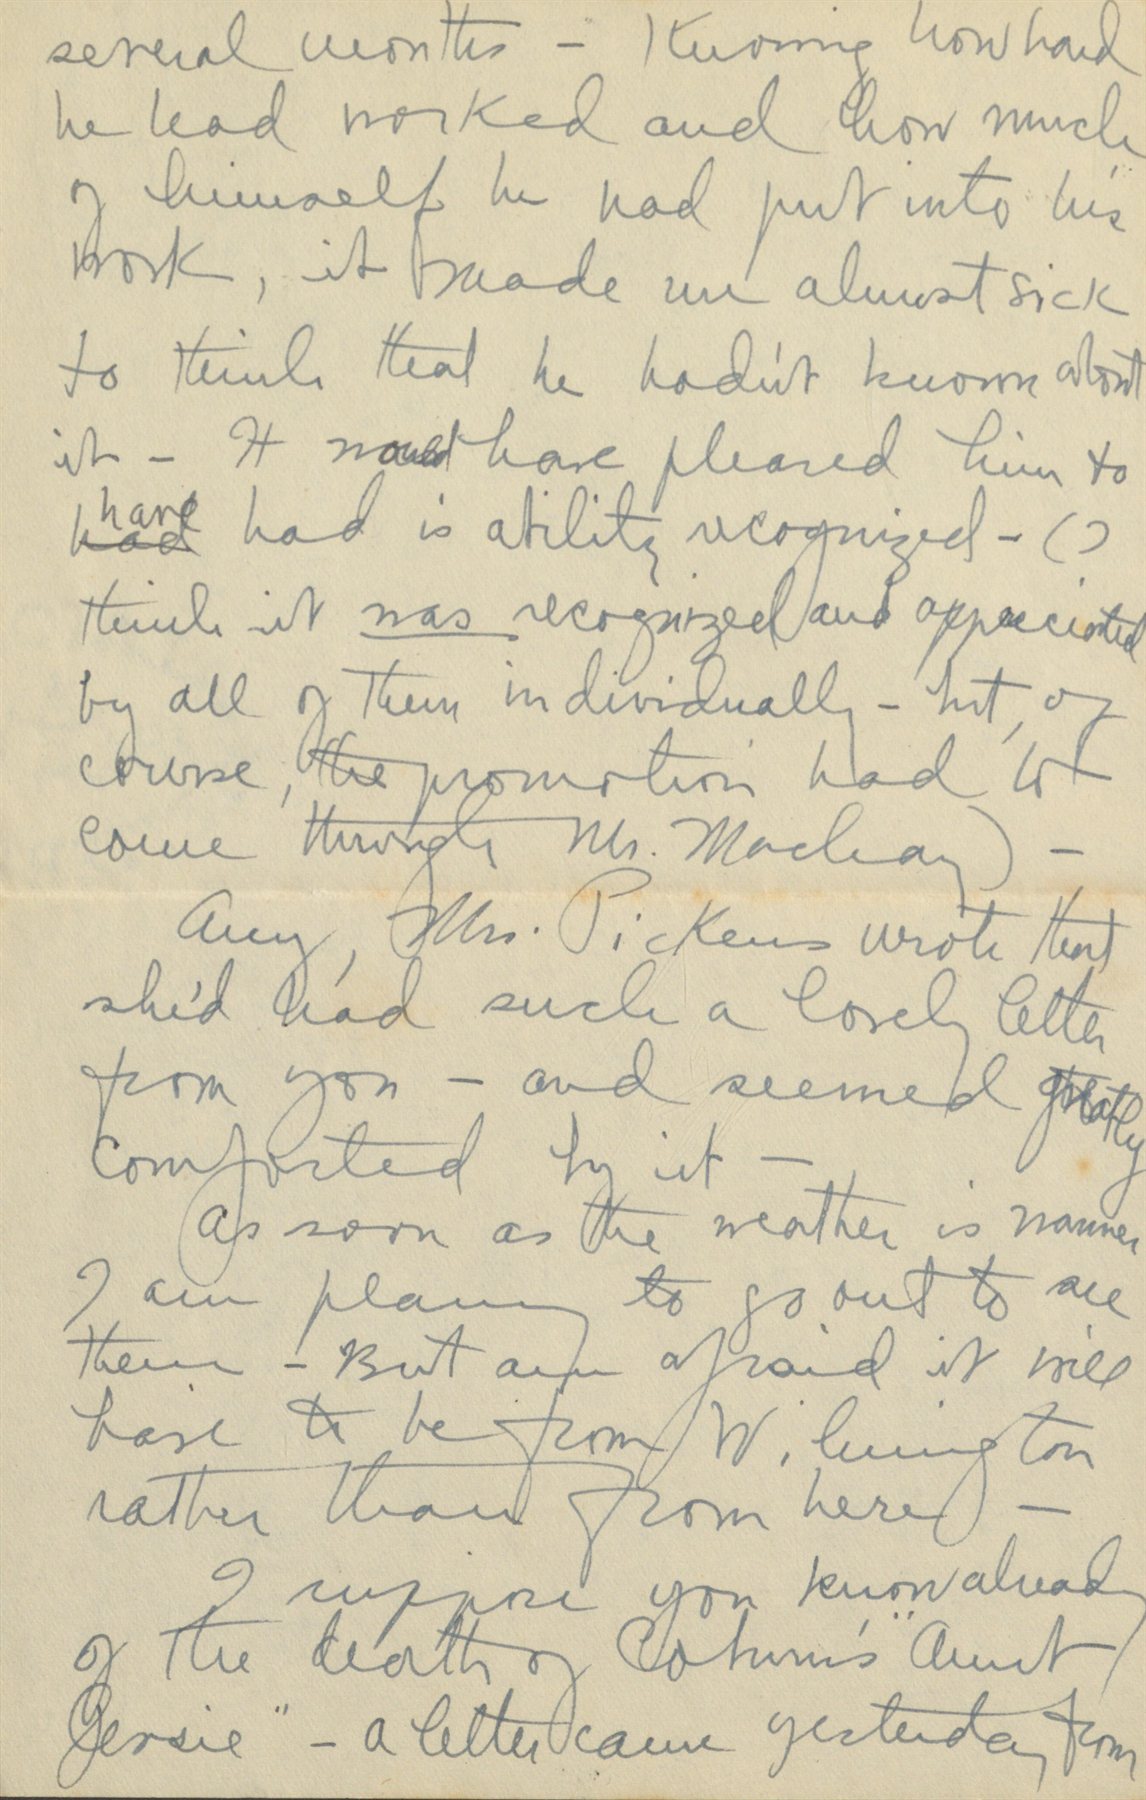 several months - Knowing how hard
he had worked and how much
of himself he had put into his
work, it made me almost sick
to think that he hadn't known about
it - It would have pleased him to
had have had is ability recognized - (I
think it was recognized and appreciated
by all of them individually - but, of
course, the promotion had to
come through Mr. Macleay) -
Amy, Mrs. Pickens wrote that
she'd had such a lovely letter
from you - and seemed greatly
comforted by it -
As soon as the weather is warmer
I am planning to go out to see
them - But am afraid it will
have to be from Wilmington
rather than from here -
I suppose you know already
of the death of "Aunt
Jessie" - a letter came yesterday from